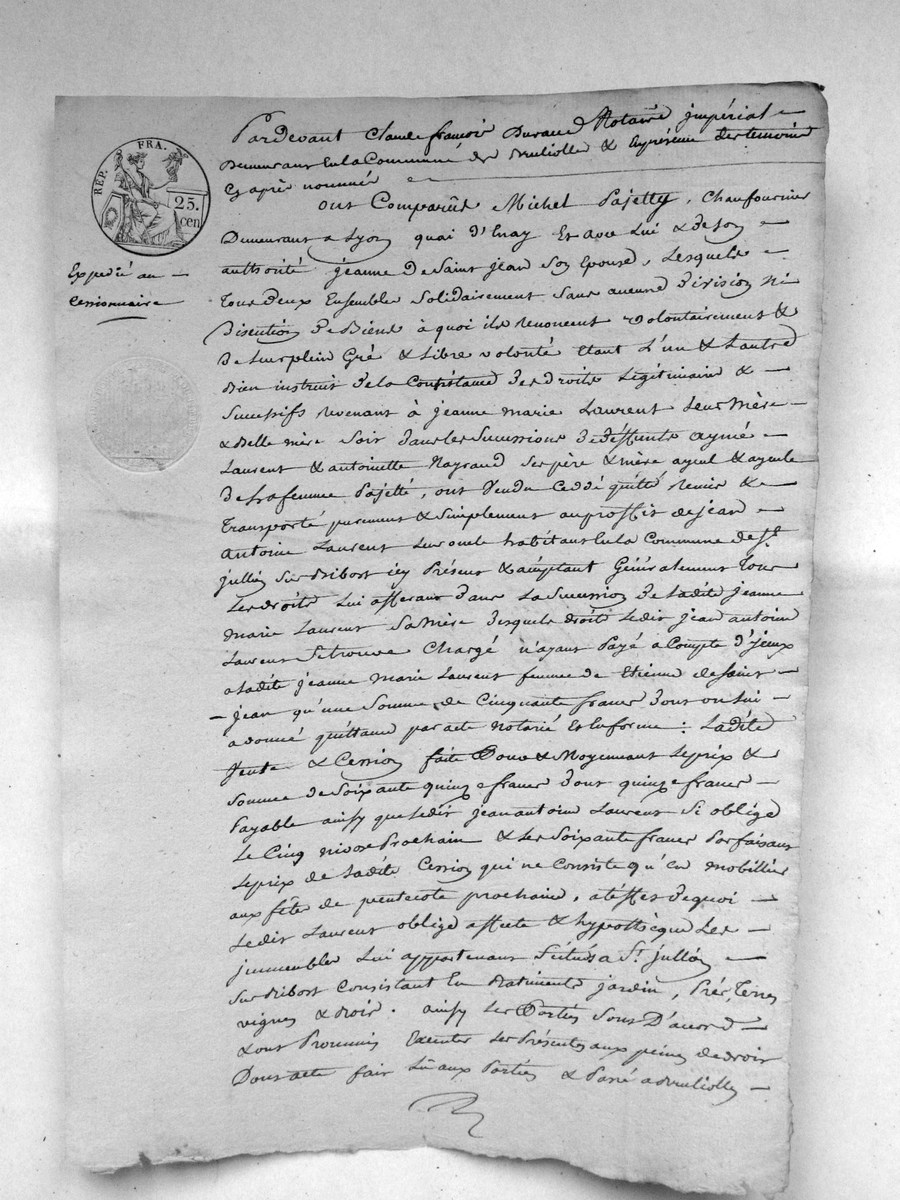 RÉP. FRA.
25. cen
Expedié au
Cessionnaire
Pardevant Claude françois Durand Notaire jmpérial
Demeurant En la Commune de & En présence des temoins
Cy après nommés
ont Comparûs Michel Pajetty, Chaufournier
Demeurant a Lyon quai d'Enay Et avec Lui & de Son
authorité jeanne de Saint jean Son Epouse, Lesquels
Tous deux Ensembles Solidairement Sans aucune Division ni
Discution De Biens à quoi ils renoncent volontairement &
De Leur plein Gré & Libre volonté Etant L'un & Lautre
Bien instruit de la Consistance des droits Légitimaires &
Successifs revenant à jeanne marie Laurent Leur Mère
& Belle mère Soit dans les Sucessions de déffunts aymé
Laurent & antoinette Nayrand Ses père & mère ayeul & ayeule
De la femme Pajetté, ont Vendu Ceddé quitté remis &
Transporté purement & Simplement au proffit de jean
Antoine Laurent Leur oncle habitant En la Commune de St.
jullien Sur Bibost icy Présent & acceptant Généralement Tous
Les droits Lui afferant dans La Sucession de Ladite jeanne
marie Laurent Sa Mère desquels droits Ledit jean antoine
Laurent Se trouve Chargé n'ayant Payé a Compte d'jceux
a Ladite jeanne Marie Laurent femme de Etienne de Saint
jean qu'une Somme de Cinquante francs dont on Lui
a donné quittance par acte Notarié En forme : Ladite
Vente & Cession faite Moyennant Le prix &
Somme de Soixante quinze francs dont quinze francs
Payable ainsy que Ledit jean antoine Laurent Si oblige
Le Cinq nivose Prochain & Les Soixante francs Parfaisant
Le prix de Ladite Cession qui ne Consiste qu'en mobillier
aux fête de pentecote prochaine, a Léffet de quoi
Ledit Laurent oblige affecte & hypothèque Les
jmmeubles Lui appartenant Scitués a St. jullien
Sur Bibost Consistant En Batiments jardin, Prés, Terres
vignes & Bois. ainsy Les Parties Sont D'accord
& ont Promis Executer Les Présentes aux peines de droit
Dont acte fait Lû aux Parties & Passé a